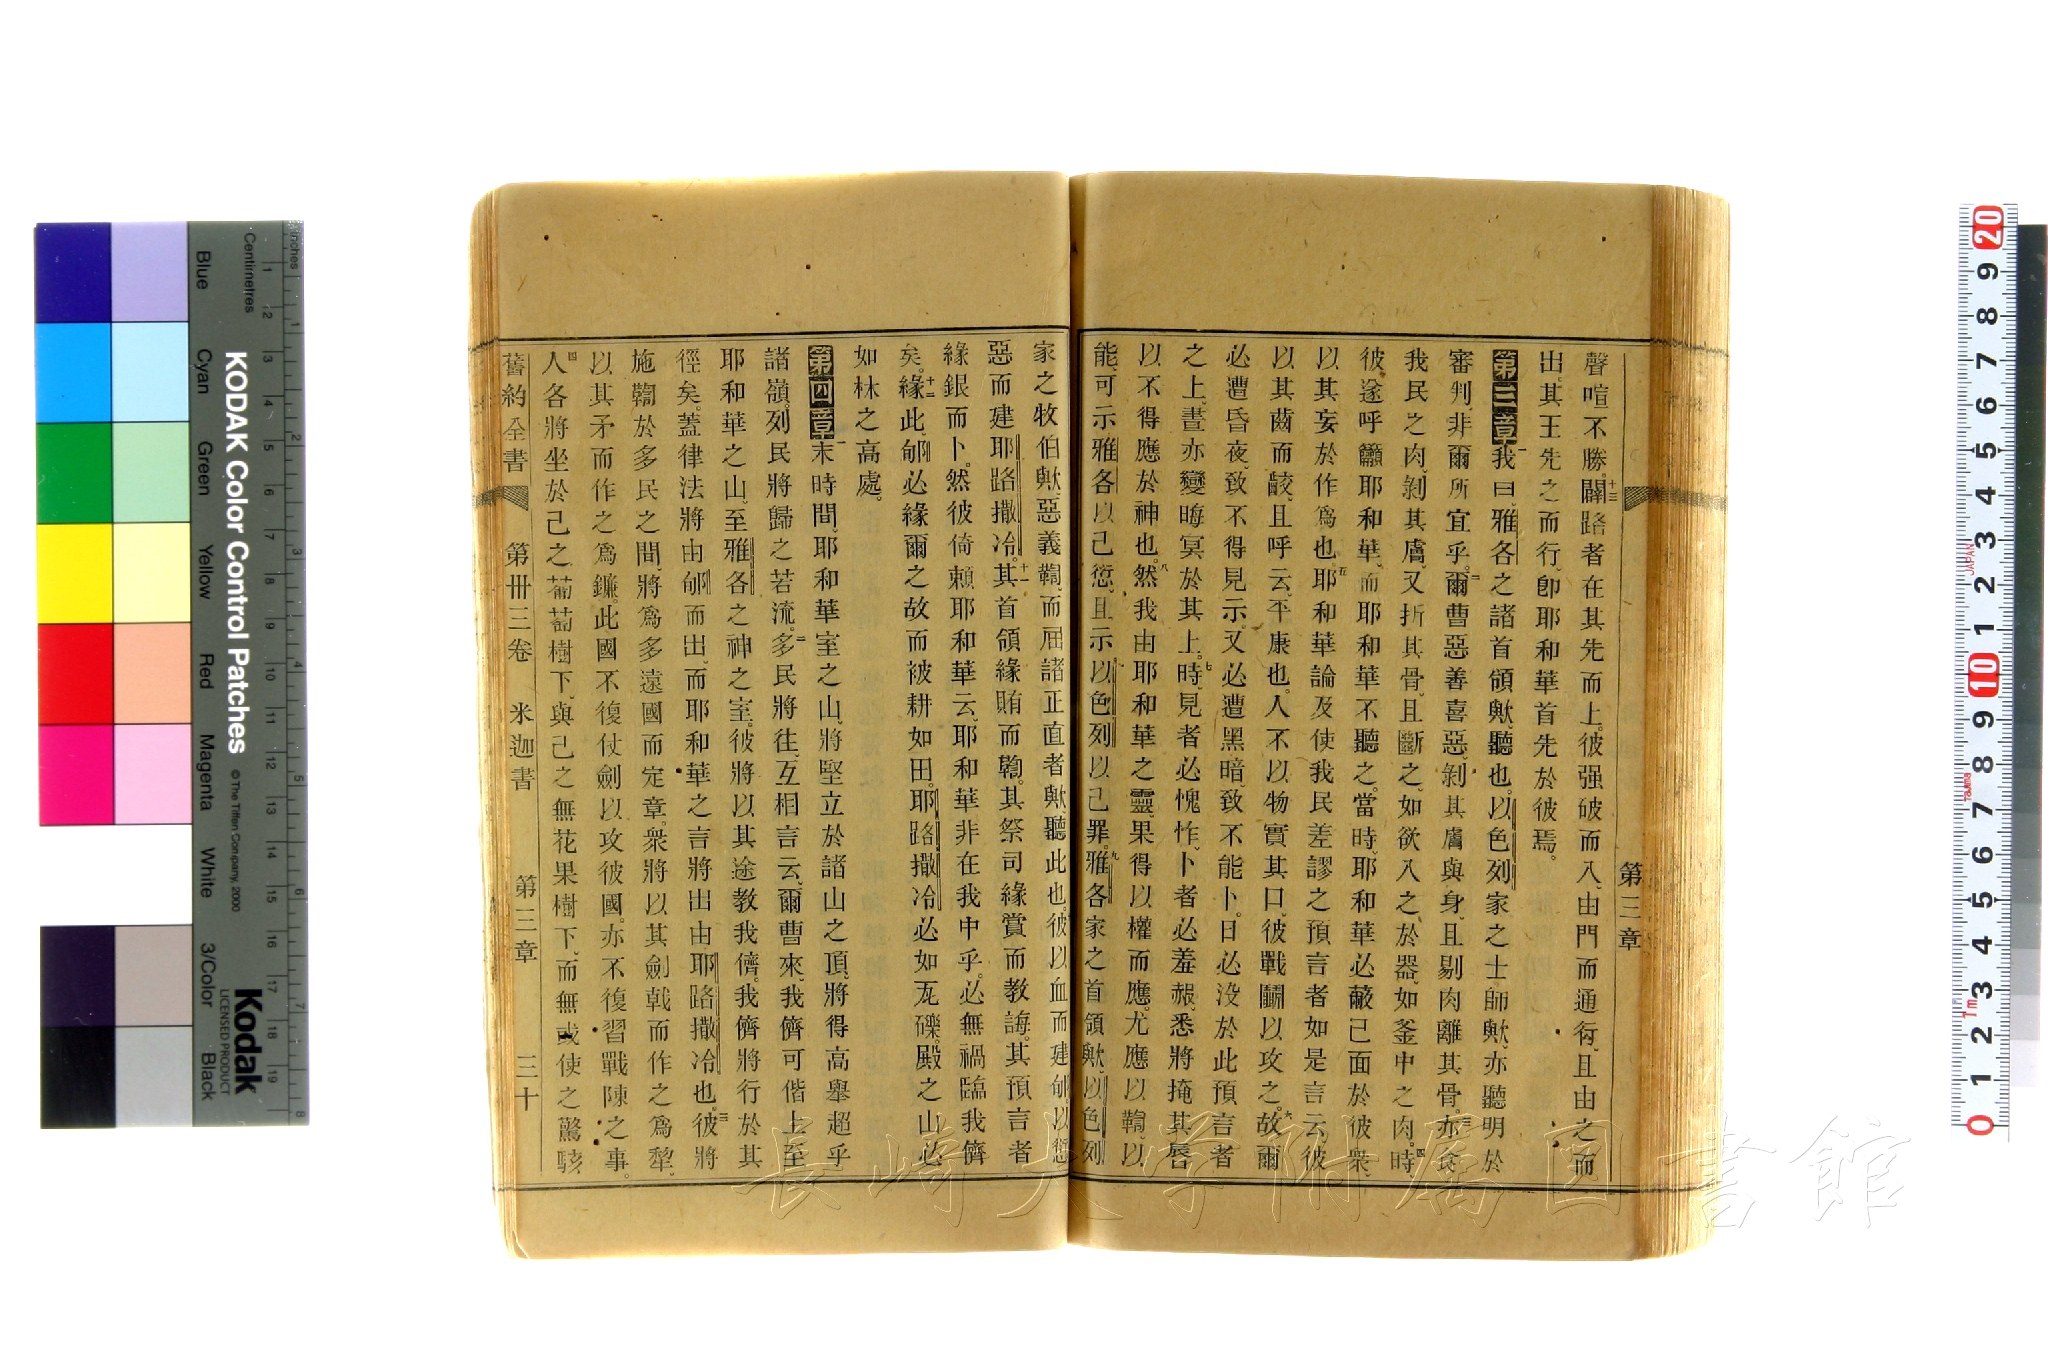 第三章
聲喧不勝。十三闢路者在其先而上。彼强破而入、由門而通衖、且由之而
出。其王先之而行、卽耶和華首先於彼焉。
第三章一我曰、雅各之諸首領歟、聽也。以色列家之士師歟、亦聽明於
審判、非爾所宜乎。二爾曹惡善喜惡、剝其膚與身、且剔肉離其骨。三亦食
我民之肉、剝其膚、又折其骨、且斷之、如欲入之於器、如釜中之肉。四時
彼遂呼籲耶和華、而耶和華不聽之。當時、耶和華必蔽己面於彼衆、
以其妄於作爲也。五耶和華論及使我民差謬之預言者如是言云、彼
以其齒而齩、且呼云、平康也。人不以物實其口、彼戰鬭以攻之。六故爾
必遭昏夜、致不得見示、又必遭黑暗、致不能卜。日必没於此預言者
之上、晝亦變晦冥於其上。七時、見者必愧怍、卜者必羞赧、悉將掩其唇
以不得應於神也。八然我由耶和華之靈、果得以權而應。尤應以鞫、以
能、可示雅各以己愆、且示以色列以己罪。九雅各家之首領歟、以色列
家之牧伯歟、惡義鞫、而屈諸正直者歟、聽此也。彼以血而建郇、以愆
惡而建耶路撒冷。十一其首領緣賄而鞫。其祭司緣賞而教誨。其預言者
緣銀而卜。然彼倚賴耶和華云、耶和華非在我中乎。必無禍臨我儕
矣。十二緣此、郇必緣爾之故而被耕如田。耶路撒冷必如瓦礫。殿之山必
如林之高處。
第四章一末時間、耶和華室之山、將堅立於諸山之頂、將得高舉超乎
諸嶺。列民將歸之若流。二多民將往、互相言云、爾曹來、我儕可偕上至
耶和華之山、至雅各之神之室。彼將以其途教我儕。我儕將行於其
徑矣。蓋律法將由郇而出、而耶和華之言將出由耶路撒冷也。三彼將
施鞫於多民之間、將爲多遠國而定章。衆將以其劍戟而作之爲犂。
以其矛而作之爲鐮。此國不復仗劍以攻彼國。亦不復習戰陳之事。
四人各將坐於己之葡萄樹下、與己之無花果樹下、而無或使之驚駭
舊約全書 第卅三卷 米迦書 第三章 三十
KODAK Color Control Patches
©The Tiffen Company, 2000
Kodak
LICENSED PRODUCT
Inches
Centimetres
Blue Cyan Green Yellow Red Magenta White 3/Color Black
長崎大学附属図書館
JAPAN
Tajima